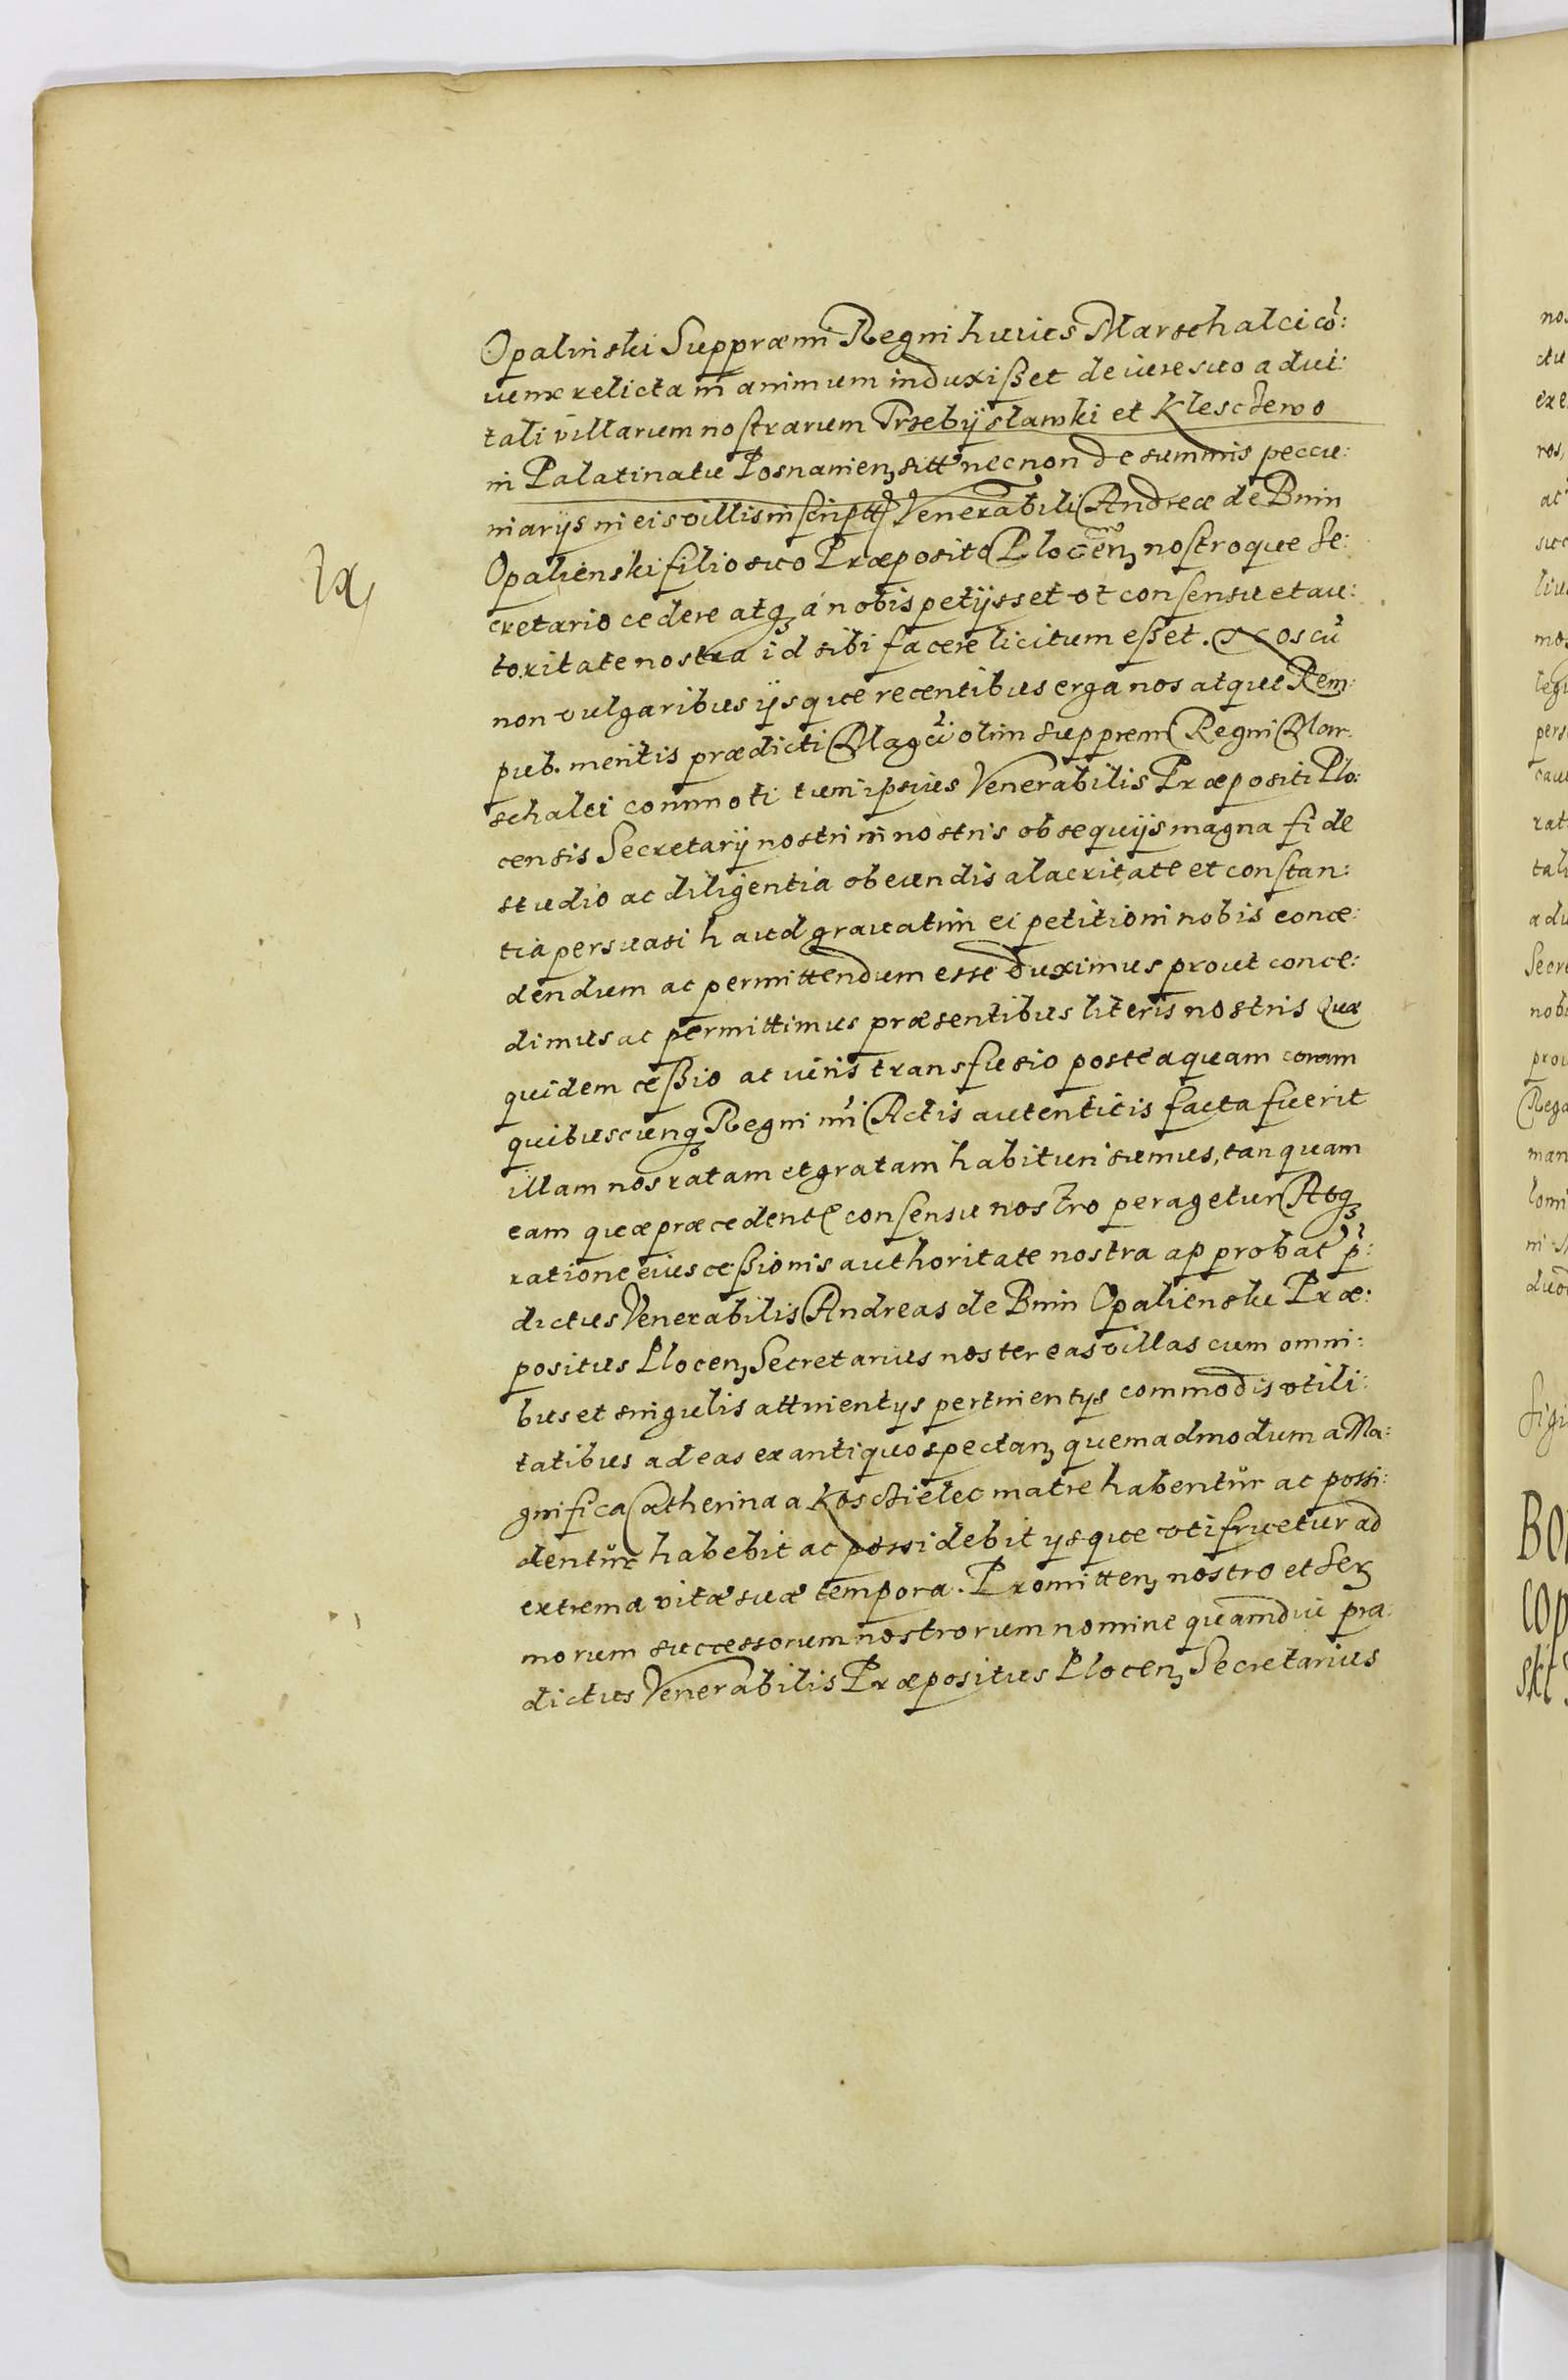 Opalinski Suppræmi Regni huius Marschalci co:
iunx relicta in animum induxißet de iure suo adui:
tali villarum nostrarum Trsebÿslawki et Klesctewo
in Palatinatu Posnanien sitt necnon de summis peccu:
niarÿs in eis villis inscriptt Venerabili Andreæ de Bnin
Opalienski filio suo Præposito Plocen nostroque Se:
cretario cedere atq á nobis petÿsset vt consensu et au:
toritate nostra id sibi facere licitum eßet. Nos cu
non vulgaribus ÿsque recentibus erga nos atque Rem:
pub. meritis prædicti Magci olim suppremi Regni Mar:
schalci commoti tum ipsius Venerabilis Præpositi Plo:
censis Secretarÿ nostri in nostris obsequÿs magna fide
studio ac diligentia obeundis alacritate et constan:
tia persuasi haud grauatim ei petitioni nobis conce:
dendum ac permittendum esse duximus prout conce:
dimus ac permittimus præsentibus literis nostris Quæ
quidem ceßio ac iuris transfusio posteaquam coram
quibuscunq Regni nri Actis autenticis facta fuerit
illam nos ratam et gratam habituri sumus, tanquam
eam quæ præcedente consensu nostro peragetur Atq
ratione eius ceßionis authoritate nostra approbat p:
dictus Venerabilis Andreas de Bnin Opalienski Præ:
positus Plocen Secretarius noster eas villas cum omni:
bus et singulis attinentÿs pertinentÿs commodis vtili:
tatibus ad eas ex antiquo spectan quemadmodum a Ma:
gnifica Catherina a Kosctielec matre habentur ac possi:
dentur habebit ac possidebit ÿsque vtifruetur ad
extrema vitæ suæ tempora. Promitten nostro et Ser
morum successorum nostrorum nomine quamdiu præ:
dictus Venerabilis Præpositus Plocen Secretarius